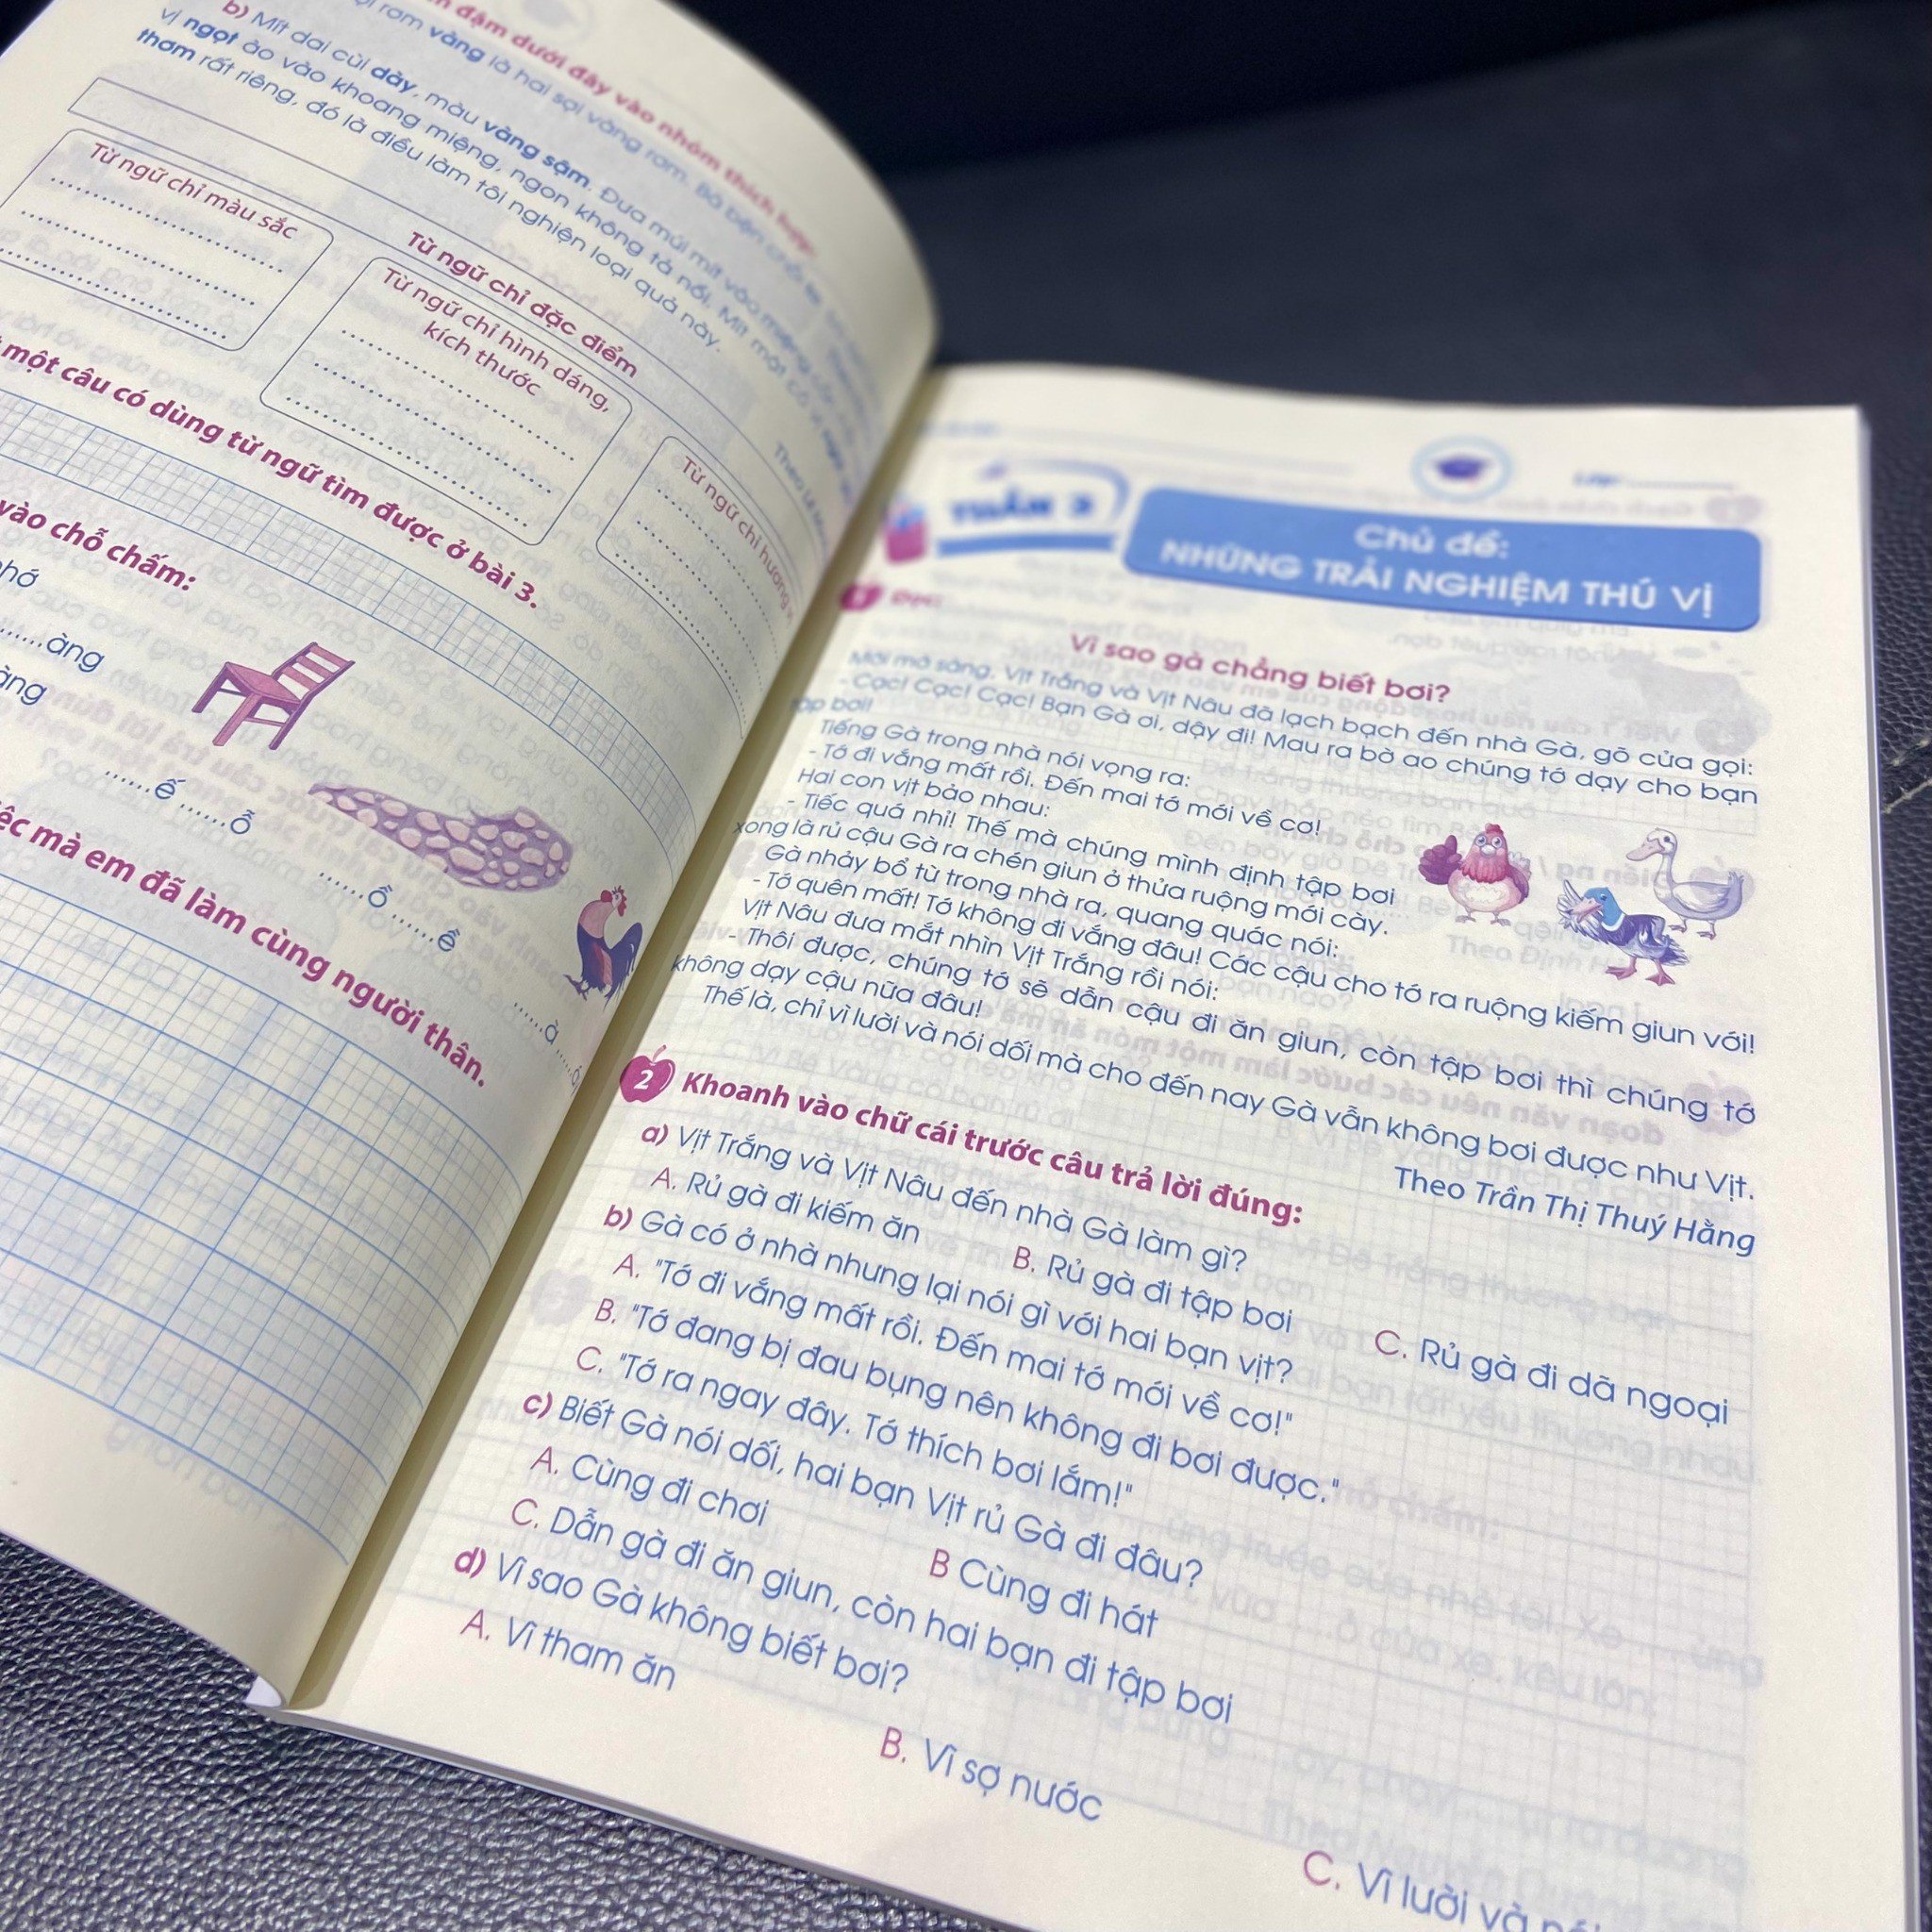 đậm dưới đây vào nhóm thích hợp:
rơm vàng là hai sợi vàng rơm. Bà bện
b) Mít dai cùi dày, màu vàng sậm. Đưa múi mít vào miệng,
vị ngọt ào vào khoang miệng, ngon không tả nổi. Mít mật có vị
thơm rất riêng, đó là điều làm tôi nghiện loại quả này.
Theo
Từ ngữ chỉ đặc điểm
Từ ngữ chỉ màu sắc
Từ ngữ chỉ hình dáng,
kích thước
Từ ngữ chỉ hương
một câu có dùng từ ngữ tìm được ở bài 3.
vào chỗ chấm:
......àng
......ế ......ỗ
......ồ ......ề
......à ......
mà em đã làm cùng người thân.
TUẦN 3
Chủ đề:
NHỮNG TRẢI NGHIỆM THÚ VỊ
1 Đọc:
Vì sao gà chẳng biết bơi?
Mới mờ sáng, Vịt Trắng và Vịt Nâu đã lạch bạch đến nhà Gà, gõ cửa gọi:
- Cạc! Cạc! Cạc! Bạn Gà ơi, dậy đi! Mau ra bờ ao chúng tớ dạy cho bạn
tập bơi!
Tiếng Gà trong nhà nói vọng ra:
- Tớ đi vắng mất rồi. Đến mai tớ mới về cơ!
Hai con vịt bảo nhau:
- Tiếc quá nhỉ! Thế mà chúng mình định tập bơi
xong là rủ cậu Gà ra chén giun ở thửa ruộng mới cày.
Gà nhảy bổ từ trong nhà ra, quang quác nói:
- Tớ quên mất! Tớ không đi vắng đâu! Các cậu cho tớ ra ruộng kiếm giun với!
Vịt Nâu đưa mắt nhìn Vịt Trắng rồi nói:
- Thôi được, chúng tớ sẽ dẫn cậu đi ăn giun, còn tập bơi thì chúng tớ
không dạy cậu nữa đâu!
Thế là, chỉ vì lười và nói dối mà cho đến nay Gà vẫn không bơi được như Vịt.
Theo Trần Thị Thuý Hằng
2 Khoanh vào chữ cái trước câu trả lời đúng:
a) Vịt Trắng và Vịt Nâu đến nhà Gà làm gì?
A. Rủ gà đi kiếm ăn B. Rủ gà đi tập bơi C. Rủ gà đi dã ngoại
b) Gà có ở nhà nhưng lại nói gì với hai bạn vịt?
A. "Tớ đi vắng mất rồi. Đến mai tớ mới về cơ!"
B. "Tớ đang bị đau bụng nên không đi bơi được."
C. "Tớ ra ngay đây. Tớ thích bơi lắm!"
c) Biết Gà nói dối, hai bạn Vịt rủ Gà đi đâu?
A. Cùng đi chơi B Cùng đi hát
C. Dẫn gà đi ăn giun, còn hai bạn đi tập bơi
d) Vì sao Gà không biết bơi?
A. Vì tham ăn B. Vì sợ nước C. Vì lười và